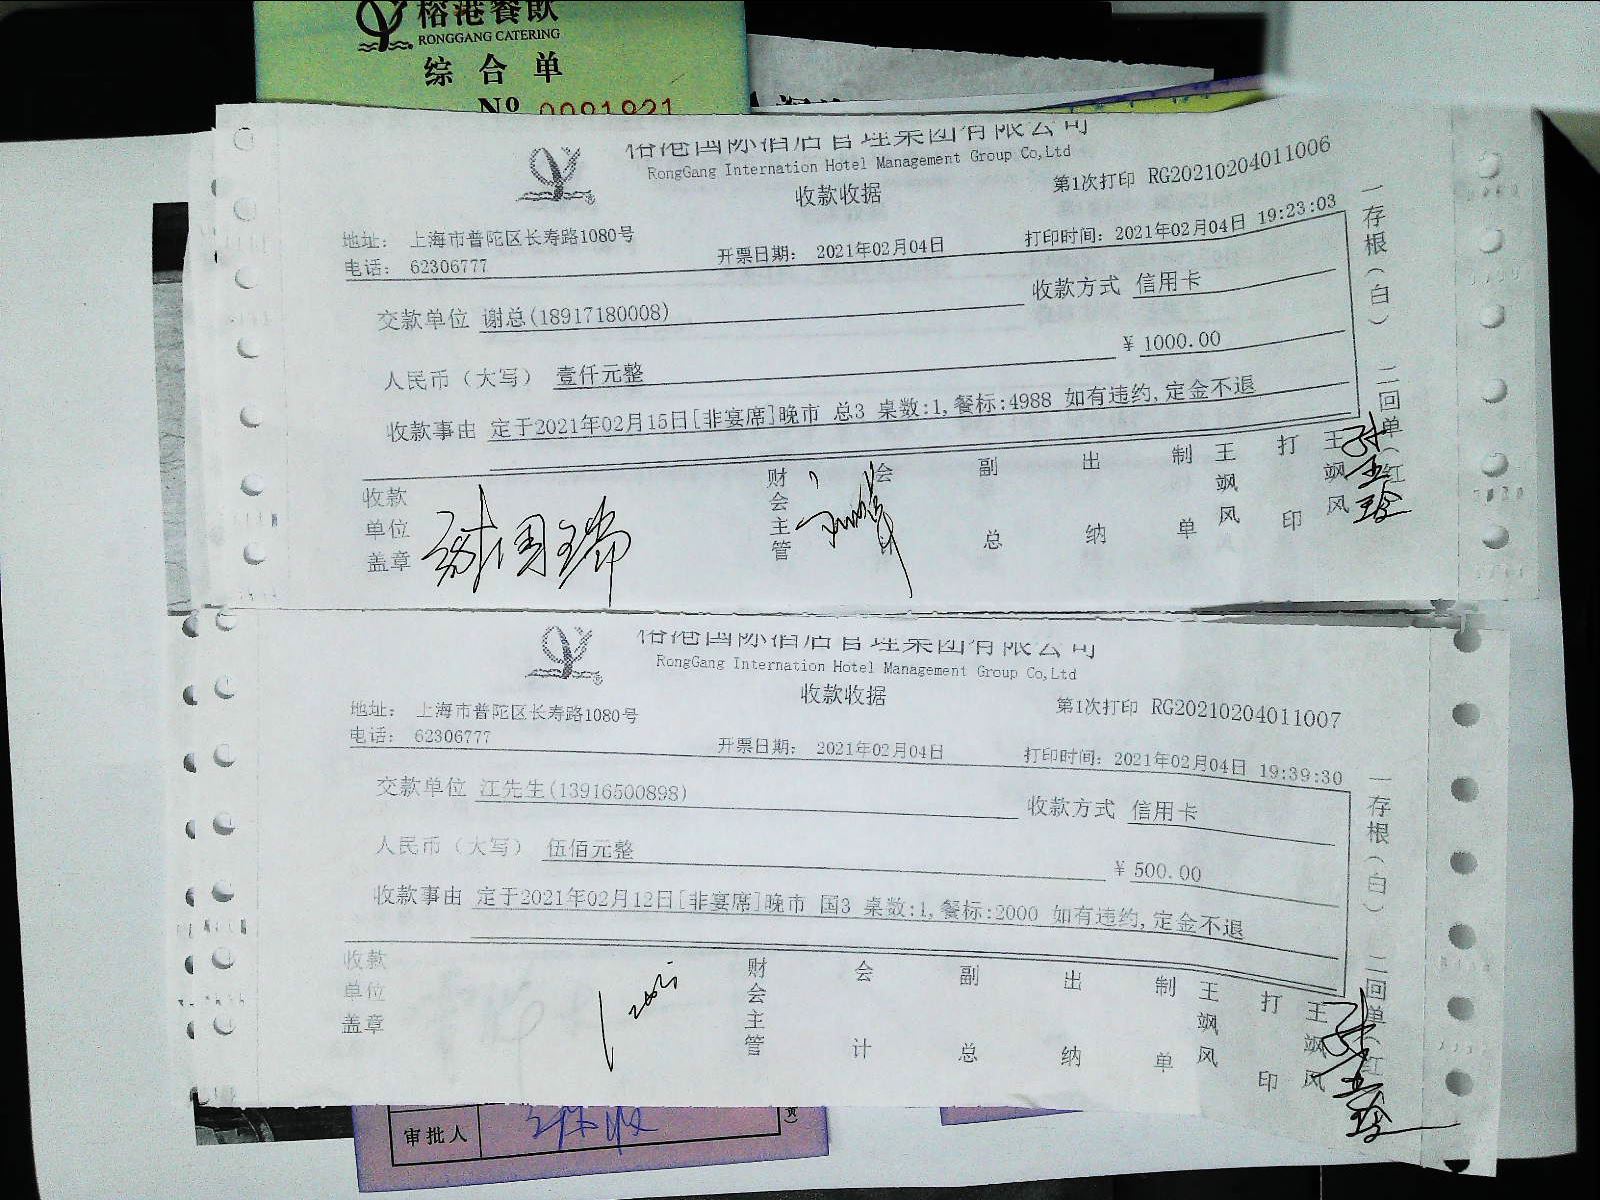 榕港餐飲
RONGGANG CATERING
综合单
Nº 0091921
榕港国际酒店管理集团有限公司
RongGang Internation Hotel Management Group Co,Ltd
收款收据
第1次打印 RG20210204011006
地址： 上海市普陀区长寿路1080号
电话： 62306777
开票日期： 2021年02月04日
打印时间：2021年02月04日 19:23:03
交款单位 谢总(18917180008)
收款方式 信用卡
人民币（大写） 壹仟元整
¥ 1000.00
收款事由 定于2021年02月15日[非宴席]晚市 总3 桌数:1,餐标:4988 如有违约,定金不退
收款单位盖章
财会主管
会
副总
出纳
制单 王飒风
打印 王飒风
一存根（白） 二回单（红
榕港国际酒店管理集团有限公司
RongGang Internation Hotel Management Group Co,Ltd
收款收据
第1次打印 RG20210204011007
地址： 上海市普陀区长寿路1080号
电话： 62306777
开票日期： 2021年02月04日
打印时间：2021年02月04日 19:39:30
交款单位 江先生(13916500898)
收款方式 信用卡
人民币（大写） 伍佰元整
¥ 500.00
收款事由 定于2021年02月12日[非宴席]晚市 国3 桌数:1,餐标:2000 如有违约,定金不退
收款单位盖章
财会主管
会计
副总
出纳
制单 王飒风
打印 王飒风
一存根（白） 二回单（红
审批人